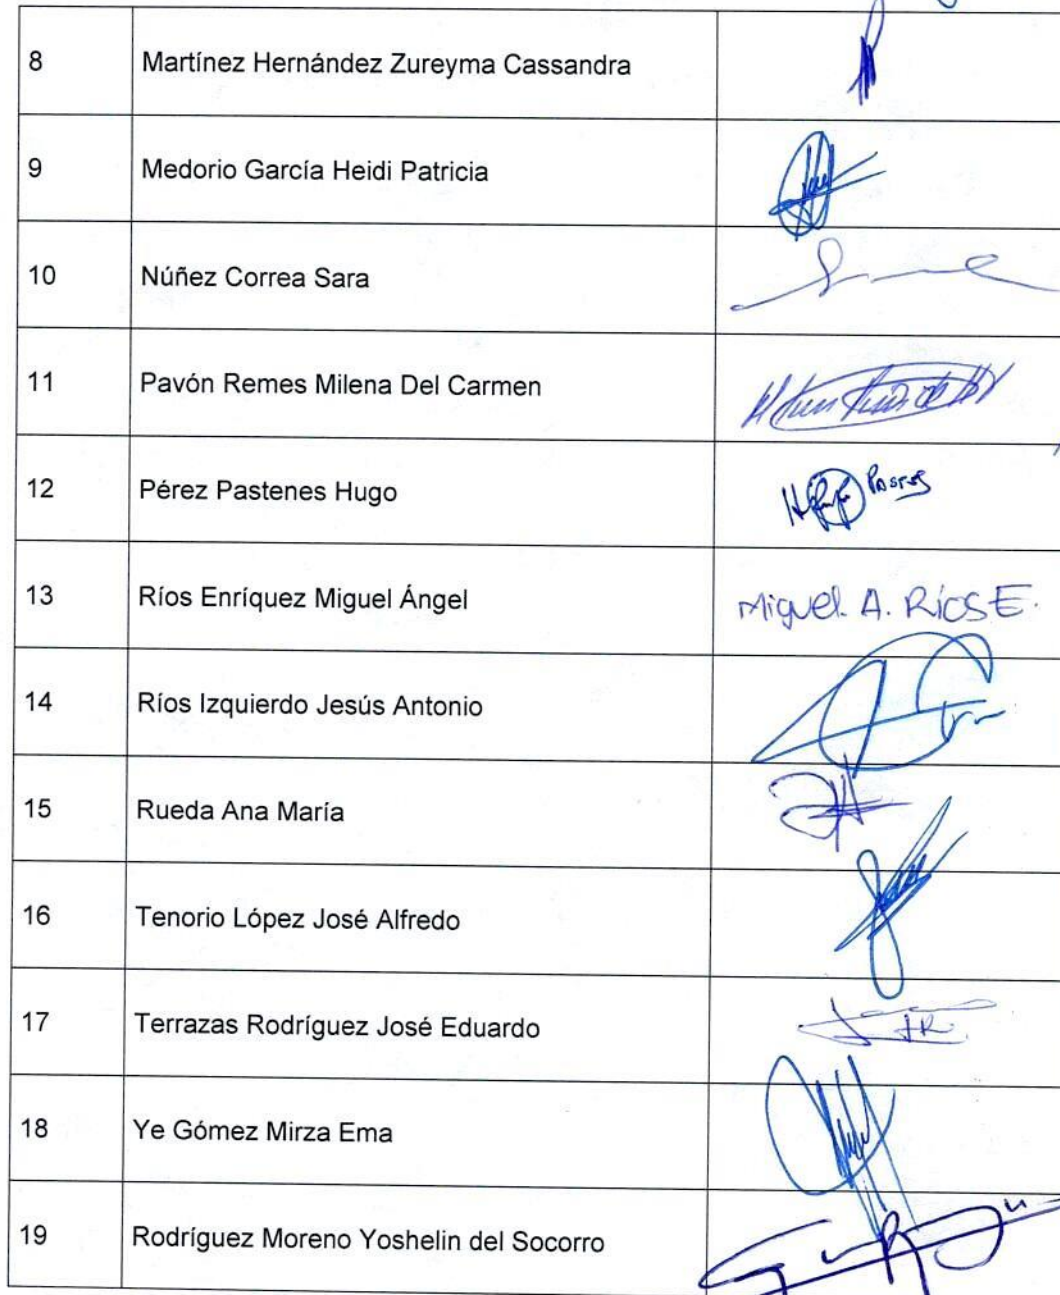 8 Martínez Hernández Zureyma Cassandra
9 Medorio García Heidi Patricia
10 Núñez Correa Sara
11 Pavón Remes Milena Del Carmen
12 Pérez Pastenes Hugo
13 Ríos Enríquez Miguel Ángel Miguel. A. Ríos E.
14 Ríos Izquierdo Jesús Antonio
15 Rueda Ana María
16 Tenorio López José Alfredo
17 Terrazas Rodríguez José Eduardo
18 Ye Gómez Mirza Ema
19 Rodríguez Moreno Yoshelin del Socorro